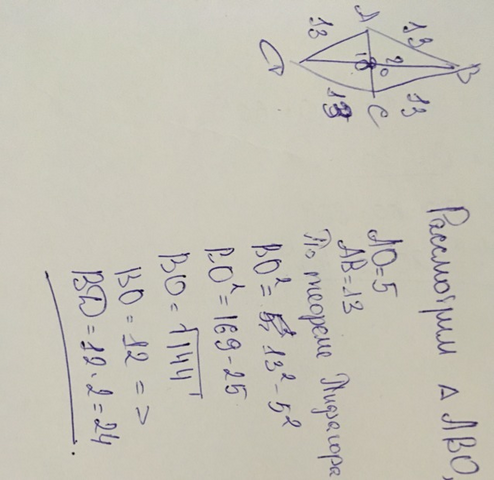 A
13
13
B
D
10
2
O
13
13
C
Рассмотрим Δ ABO,
AO=5
AB=13
По теореме Пифагора
BO² = 13² - 5²
BO² = 169 - 25
BO = √144
BO = 12 =>
BD = 12 · 2 = 24